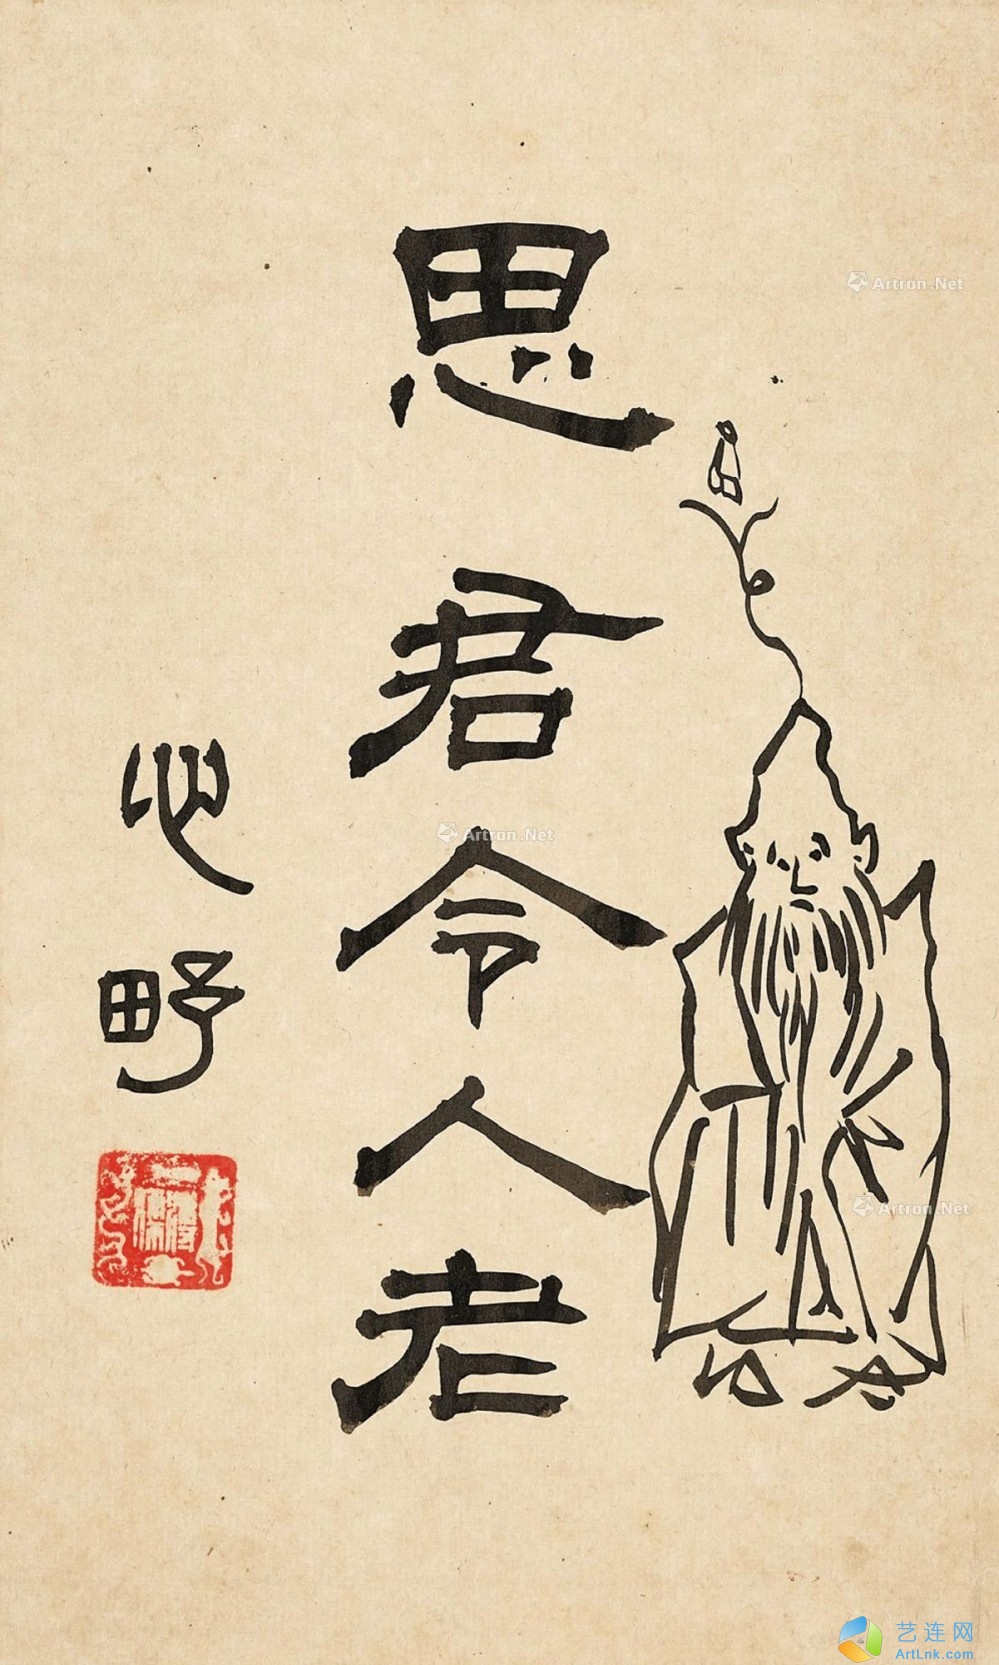 思君令人老
心野
Artron.Net
Artron.Net
Artron.Net
艺连网
ArtLnk.com